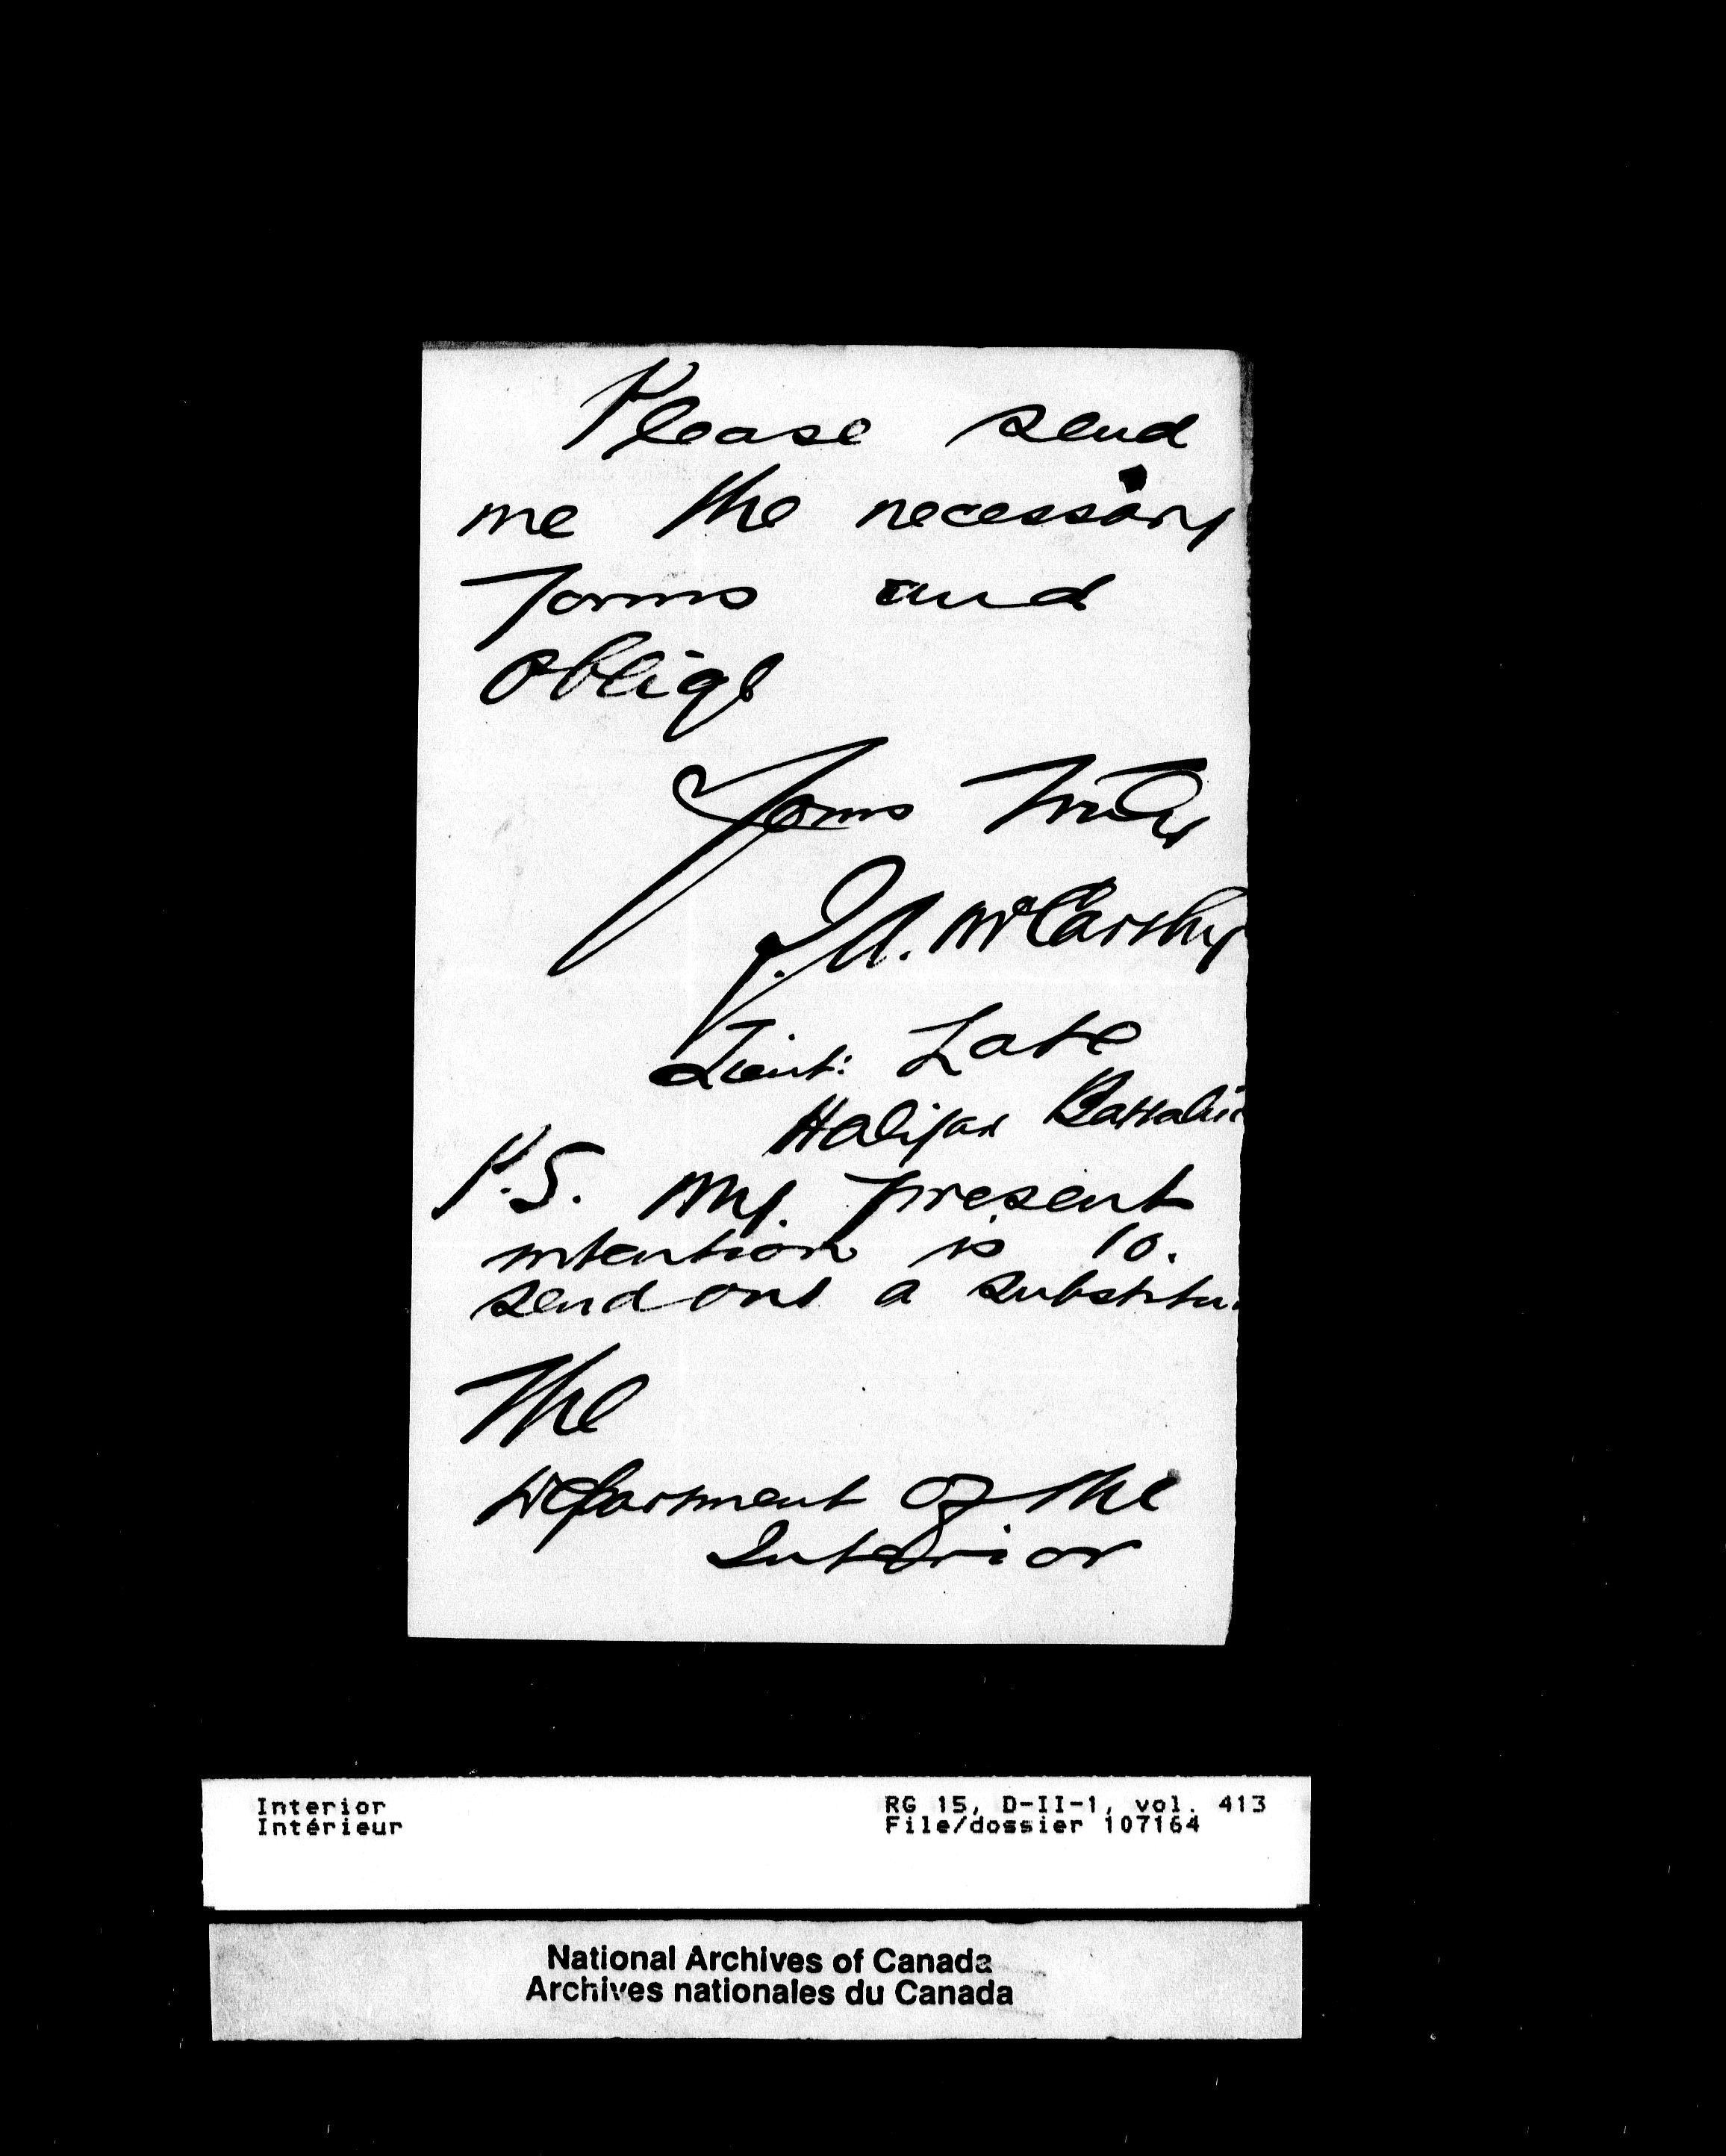 Please send
me the necessary
Forms and
oblige
Yours Truly
J. A. McCarthy
Lieut: Late
Halifax Battalio
P.S. My present
intention is to.
send out a substitu
The
Department of the
Interior
Interior
Intérieur
RG 15, D-II-1, vol. 413
File/dossier 107164
National Archives of Canada
Archives nationales du Canada